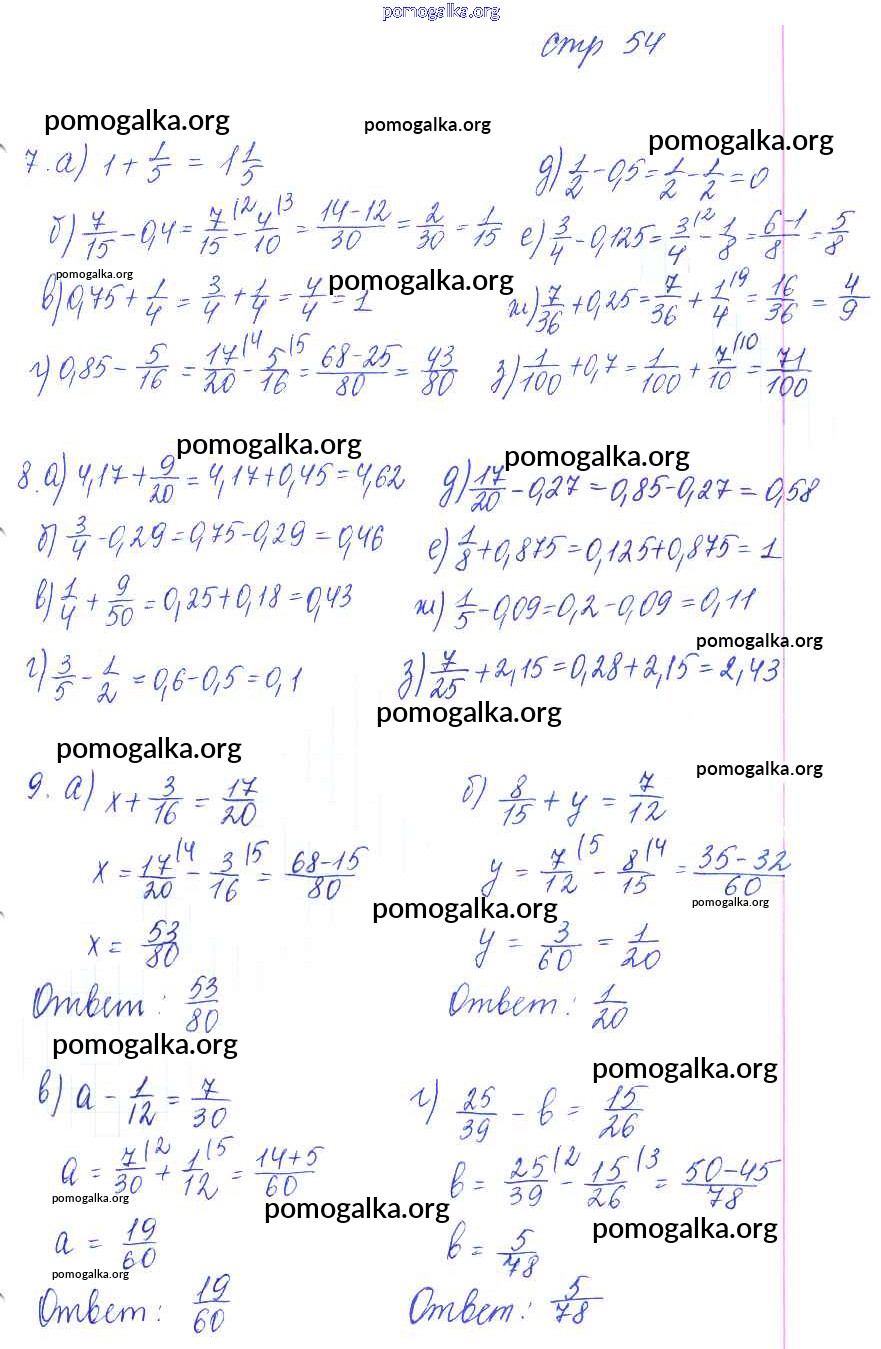 pomogalka.org
стр 54
pomogalka.org pomogalka.org pomogalka.org
7. а) 1 + 1/5 = 1 1/5 д) 1/2 - 0,5 = 1/2 - 1/2 = 0
б) 7/15 - 0,4 = 7/15 (2 - 4/10 (3 = 14-12/30 = 2/30 = 1/15 е) 3/4 - 0,125 = 3/4 (2 - 1/8 = 6-1/8 = 5/8
pomogalka.org pomogalka.org
в) 0,75 + 1/4 = 3/4 + 1/4 = 4/4 = 1 ж) 7/36 + 0,25 = 7/36 + 1/4 (9 = 16/36 = 4/9
г) 0,85 - 5/16 = 17/20 (4 - 5/16 (5 = 68-25/80 = 43/80 з) 1/100 + 0,7 = 1/100 + 7/10 (10 = 71/100
pomogalka.org pomogalka.org
8. а) 4,17 + 9/20 = 4,17 + 0,45 = 4,62 д) 17/20 - 0,27 = 0,85 - 0,27 = 0,58
б) 3/4 - 0,29 = 0,75 - 0,29 = 0,46 е) 1/8 + 0,875 = 0,125 + 0,875 = 1
в) 1/4 + 9/50 = 0,25 + 0,18 = 0,43 ж) 1/5 - 0,09 = 0,2 - 0,09 = 0,11
pomogalka.org
г) 3/5 - 1/2 = 0,6 - 0,5 = 0,1 з) 7/25 + 2,15 = 0,28 + 2,15 = 2,43
pomogalka.org
pomogalka.org pomogalka.org
9. а) x + 3/16 = 17/20 б) 8/15 + y = 7/12
x = 17/20 (4 - 3/16 (5 = 68-15/80 y = 7/12 (5 - 8/15 (4 = 35-32/60
pomogalka.org pomogalka.org
x = 53/80 y = 3/60 = 1/20
Ответ: 53/80 Ответ: 1/20
pomogalka.org pomogalka.org
в) a - 1/12 = 7/30 г) 25/39 - в = 15/26
a = 7/30 (2 + 1/12 (5 = 14+5/60 в = 25/39 (2 - 15/26 (3 = 50-45/78
pomogalka.org pomogalka.org pomogalka.org
a = 19/60 в = 5/78
pomogalka.org
Ответ: 19/60 Ответ: 5/78